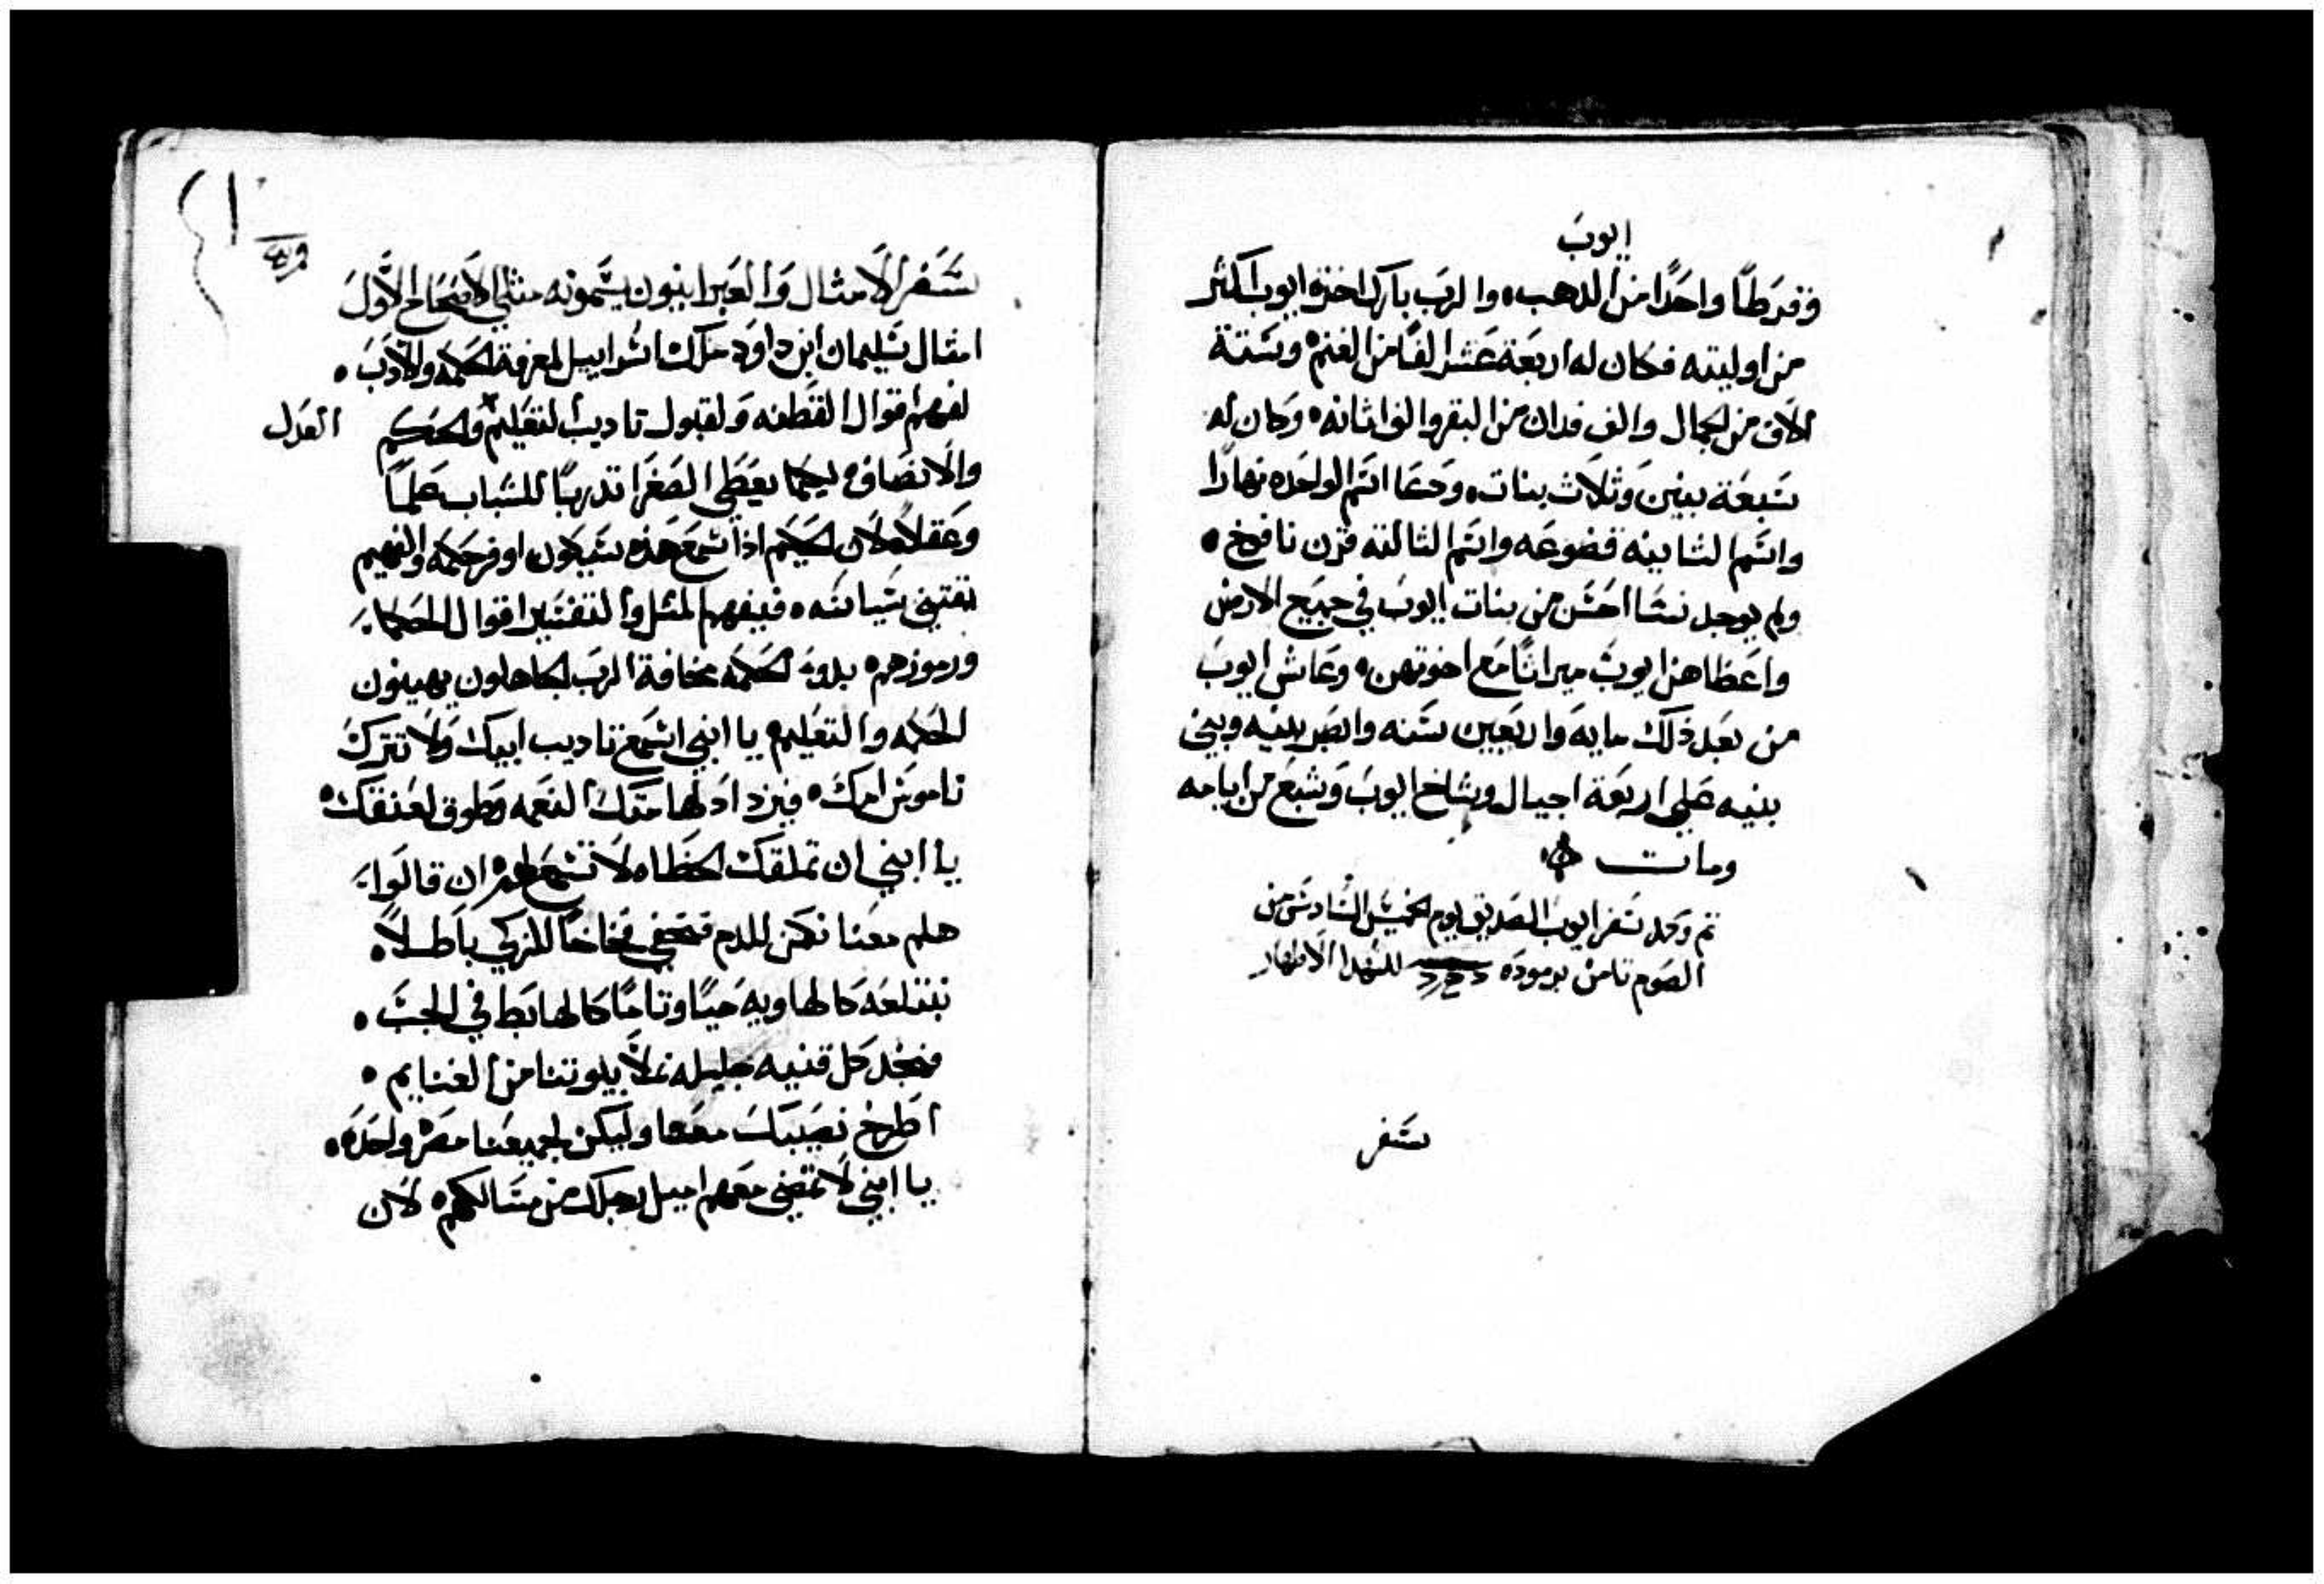 ايوبَ
وقرطًا واحدًا من الدهب، والرب بارك اخرة ايوب اكثر
من اوليته فكان له اربعة عشر الفًا من الغنم، وستة
الاف من الجمال والف فدان من البقر والف اتانه، وكان له
سبعة بنين وثلاث بنات، ودعا اسم الواحده نهارا
واسم التانيه قضوعه واسم التالته قرن نافوخ،
ولم يوجد نسا احسن من بنات ايوب في جميع الارض
واعطاهن ايوب ميراثًا مع اخوتهن، وعاش ايوب
من بعد ذلك مايه واربعين سنه وابصر بنيه وبني
بنيه على اربعة اجيال وشاخ ايوب وشبع من ايامه
ومات
تم وكمل سفر ايوب الصديق يوم الخميس السادس من
الصوم تامن برموده للشهدا الاطهار
سفر
سفر الامثال والعبرانيون يسمونه متلي الاصحاح الاول
امثال سليمان ابن داود ملك اسراييل لمعرفة الحكمه والادب،
لفهم اقوال الفطنه ولقبول تاديب التعليم والحكم العدل
والانصاف، ليكما يعطي الصغرا تدربًا للشباب علمًا
وعقلًا، لان الحكيم اذا سمع هذه سيكون اوفر حكمه والفهيم
يقتني سياسه، فيفهم المثل والتفسير اقوال الحكما
ورموزهم، بدوُ الحكمه مخافة الرب الجاهلون يهينون
الحكمه والتعليم، يا ابني اسمع تاديب ابيك ولا تترك
ناموس امك، فيزداد لهامتك النعمه وطوق لعنقك،
يا ابني ان تملقك الخطاه لا تسمع لهم، ان قالوا
هلم معنا نكمن للدم فنخفي فخاخًا للزكي باطلًا،
نبتلعه كالهاويه حيًا وتامًا كالهابط في الجب،
فنجد كل قنيه جليله نملا بيوتنا من الغنايم،
اطرح نصيبك معنا وليكن لجميعنا مصره واحده،
يا ابني لا تمضي معهم اميل رجلك من مسالكهم، لان